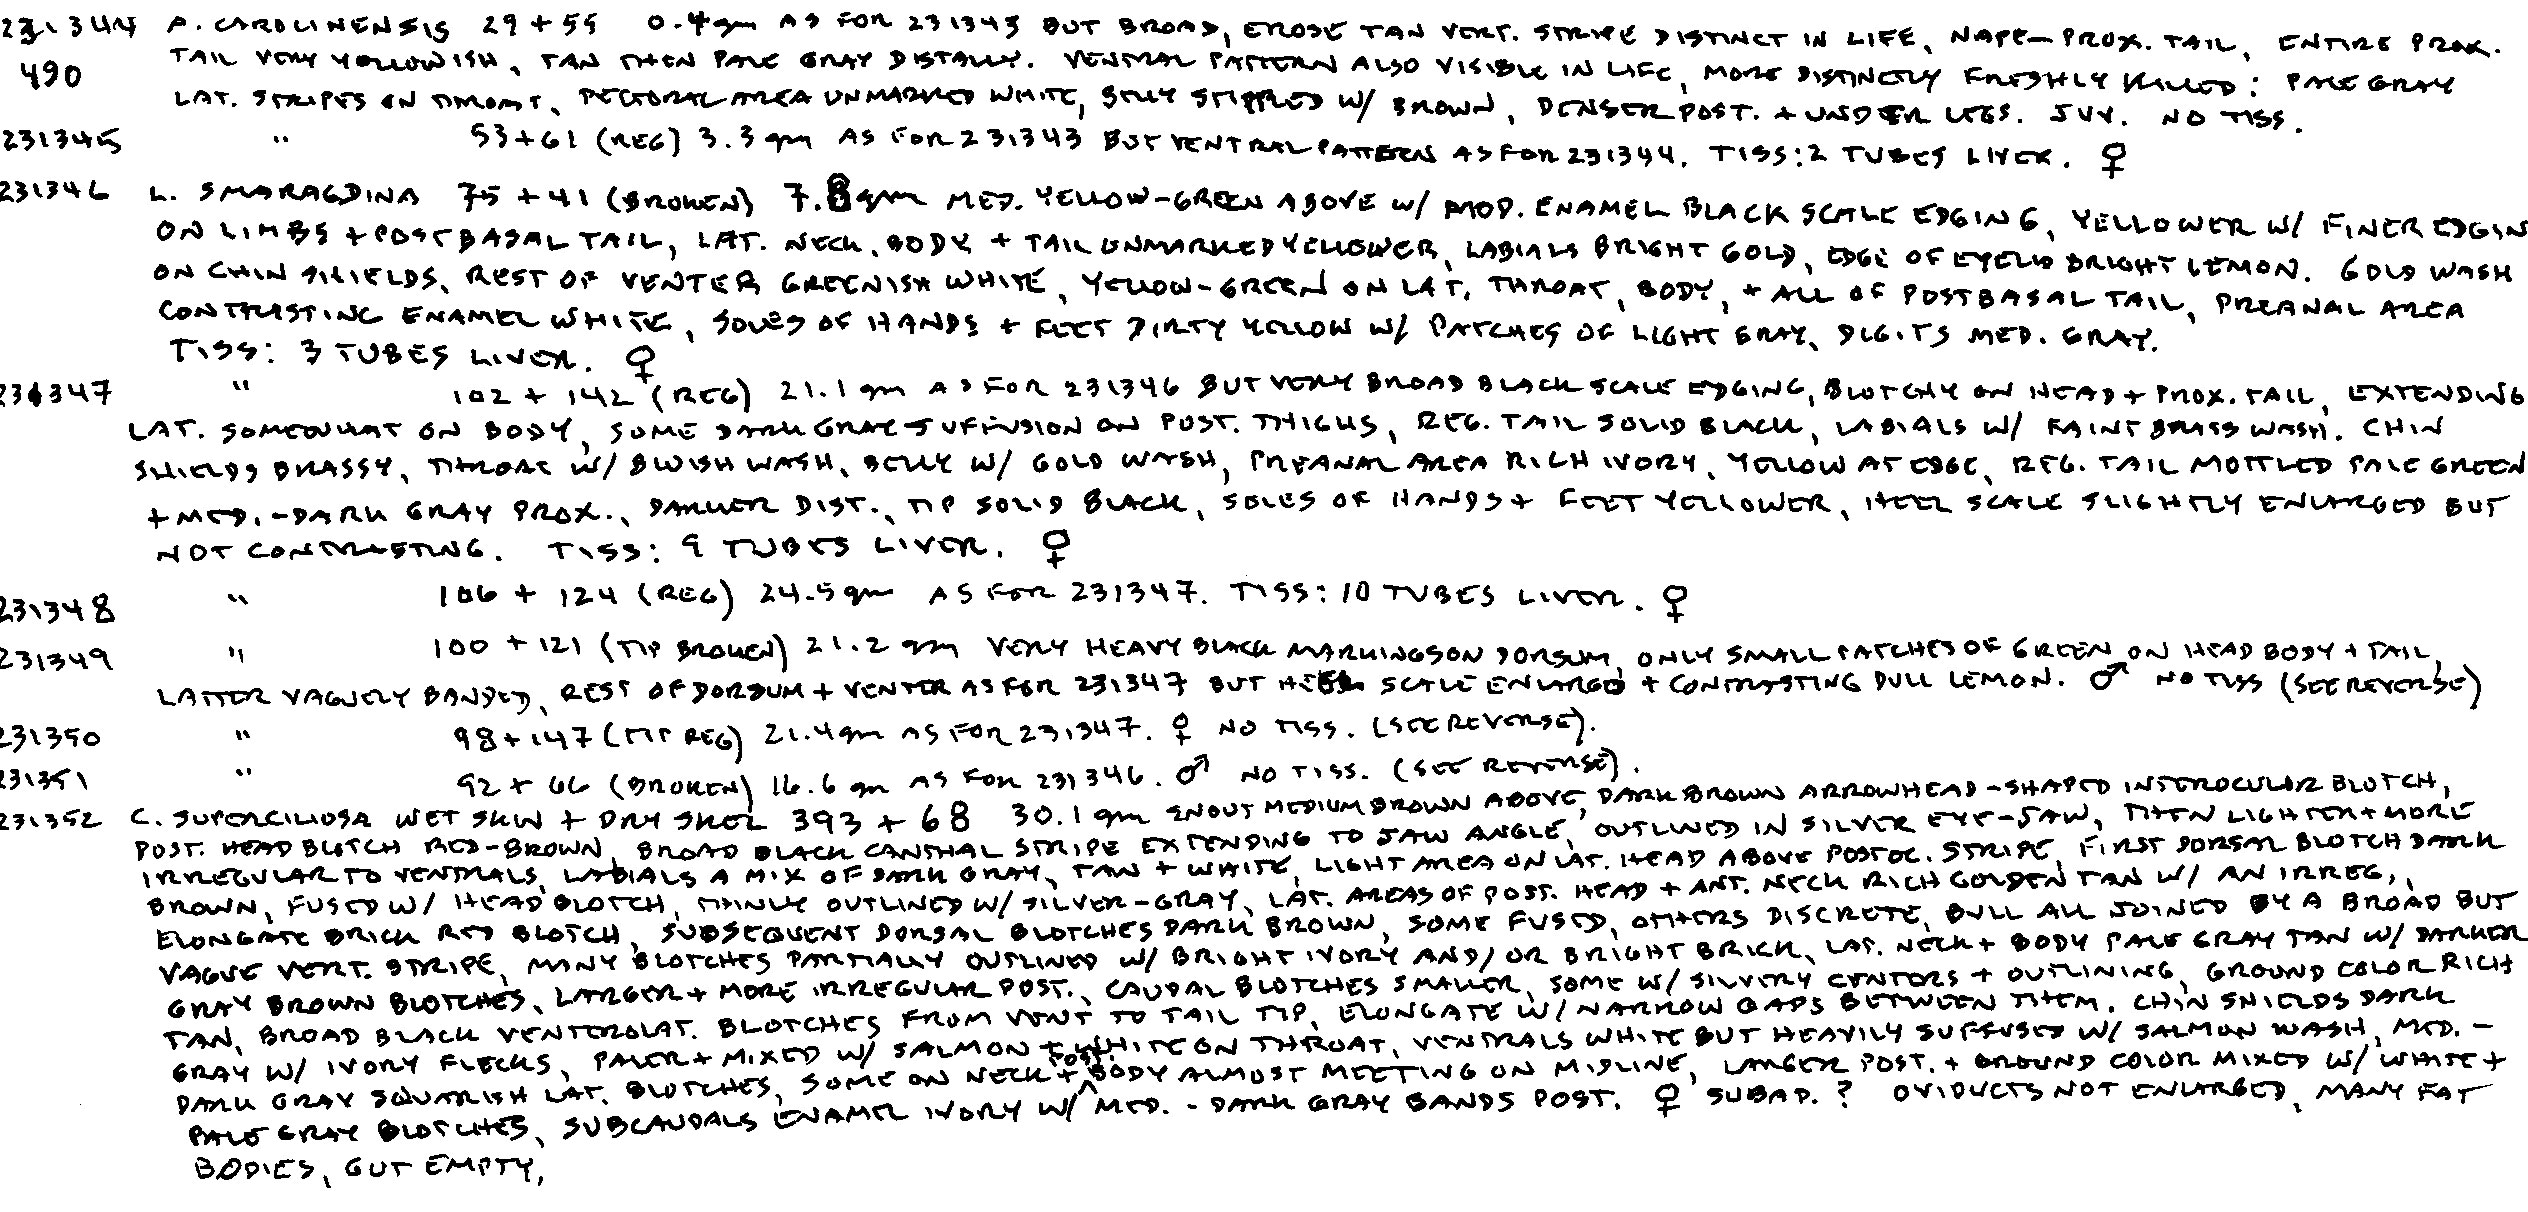 231344 A. CAROLINENSIS 29 + 55 0.4 gm AS FOR 231343 BUT BROAD, EROSE TAN VERT. STRIPE DISTINCT IN LIFE, NAPE – PROX. TAIL, ENTIRE PROX.
490 TAIL VERY YELLOWISH, TAN THEN PALE GRAY DISTALLY. VENTRAL PATTERN ALSO VISIBLE IN LIFE, MORE DISTINCTLY FRESHLY KILLED: PALE GRAY
LAT. STRIPES ON THROAT, PECTORAL AREA UNMARKED WHITE, BELLY STIPPLED W/ BROWN, DENSER POST. + UNDER LEGS. JUV. NO TISS.
231345 " 53 + 61 (REG) 3.3 gm AS FOR 231343 BUT VENTRAL PATTERN AS FOR 231344. TISS: 2 TUBES LIVER. ♀
231346 L. SMARAGDINA 75 + 41 (BROKEN) 7.8 gm MED. YELLOW-GREEN ABOVE W/ MOD. ENAMEL BLACK SCALE EDGING, YELLOWER W/ FINER EDGIN
ON LIMBS + POSTBASAL TAIL, LAT. NECK, BODY + TAIL UNMARKED YELLOWER, LABIALS BRIGHT GOLD, EDGE OF EYELID BRIGHT LEMON. GOLD WASH
ON CHIN SHIELDS, REST OF VENTER GREENISH WHITE, YELLOW-GREEN ON LAT. THROAT, BODY, + ALL OF POSTBASAL TAIL, PREANAL AREA
CONTRASTING ENAMEL WHITE, SOLES OF HANDS + FEET DIRTY YELLOW W/ PATCHES OF LIGHT GRAY, DIGITS MED. GRAY.
TISS: 3 TUBES LIVER. ♀
231347 " 102 + 142 (REG) 21.1 gm AS FOR 231346 BUT VERY BROAD BLACK SCALE EDGING, BLOTCHY ON HEAD + PROX. TAIL, EXTENDING
LAT. SOMEWHAT ON BODY, SOME DARK GRAY SUFFUSION ON POST. THIGHS, REG. TAIL SOLID BLACK, LABIALS W/ FAINT BRASS WASH. CHIN
SHIELDS BRASSY, THROAT W/ BLUISH WASH, BELLY W/ GOLD WASH, PREANAL AREA RICH IVORY, YELLOW AT EDGE, REG. TAIL MOTTLED PALE GREEN
+ MED.-DARK GRAY PROX., DARKER DIST., TIP SOLID BLACK, SOLES OF HANDS + FEET YELLOWER, HEEL SCALE SLIGHTLY ENLARGED BUT
NOT CONTRASTING. TISS: 9 TUBES LIVER. ♀
231348 " 106 + 124 (REG) 24.5 gm AS FOR 231347. TISS: 10 TUBES LIVER. ♀
231349 " 100 + 121 (TIP BROKEN) 21.2 gm VERY HEAVY BLACK MARKINGS ON DORSUM, ONLY SMALL PATCHES OF GREEN ON HEAD BODY + TAIL,
LATTER VAGUELY BANDED, REST OF DORSUM + VENTER AS FOR 231347 BUT HEEL SCALE ENLARGED + CONTRASTING DULL LEMON. ♂ NO TISS (SEE REVERSE)
231350 " 98 + 147 (TIP REG) 21.4 gm AS FOR 231347. ♀ NO TISS. (SEE REVERSE).
231351 " 92 + 66 (BROKEN) 16.6 gm AS FOR 231346. ♂ NO TISS. (SEE REVERSE).
231352 C. SUPERCILIOSA WET SKIN + DRY SKEL 393 + 68 30.1 gm SNOUT MEDIUM BROWN ABOVE, DARK BROWN ARROWHEAD-SHAPED INTEROCULAR BLOTCH,
POST. HEAD BLOTCH RED-BROWN, BROAD BLACK CANTHAL STRIPE EXTENDING TO JAW ANGLE, OUTLINED IN SILVER EYE-JAW, THEN LIGHTER + MORE
IRREGULAR TO VENTRALS, LABIALS A MIX OF DARK GRAY, TAN + WHITE, LIGHT AREA ON LAT. HEAD ABOVE POSTOC. STRIPE, FIRST DORSAL BLOTCH DARK
BROWN, FUSED W/ HEAD BLOTCH, THINLY OUTLINED W/ SILVER-GRAY, LAT. AREAS OF POST. HEAD + ANT. NECK RICH GOLDEN TAN W/ AN IRREG.,
ELONGATE BRICK RED BLOTCH, SUBSEQUENT DORSAL BLOTCHES DARK BROWN, SOME FUSED, OTHERS DISCRETE, BULL ALL JOINED BY A BROAD BUT
VAGUE VERT. STRIPE, MANY BLOTCHES PARTIALLY OUTLINED W/ BRIGHT IVORY AND/OR BRIGHT BRICK, LAT. NECK + BODY PALE GRAY TAN W/ DARKER
GRAY BROWN BLOTCHES, LARGER + MORE IRREGULAR POST., CAUDAL BLOTCHES SMALLER, SOME W/ SILVERY CENTERS + OUTLINING, GROUND COLOR RICH
TAN, BROAD BLACK VENTEROLAT. BLOTCHES FROM VENT TO TAIL TIP, ELONGATE W/ NARROW GAPS BETWEEN THEM. CHIN SHIELDS DARK
GRAY W/ IVORY FLECKS, PALER + MIXED W/ SALMON + WHITE ON THROAT, VENTRALS WHITE BUT HEAVILY SUFFUSED W/ SALMON WASH, MED.-
DARK GRAY SQUARISH LAT. BLOTCHES, SOME ON NECK + POST. BODY ALMOST MEETING ON MIDLINE, LARGER POST. + GROUND COLOR MIXED W/ WHITE +
PALE GRAY BLOTCHES, SUBCAUDALS ENAMEL IVORY W/ MED.-DARK GRAY BANDS POST. ♀ SUBAD.? OVIDUCTS NOT ENLARGED, MANY FAT
BODIES, GUT EMPTY,